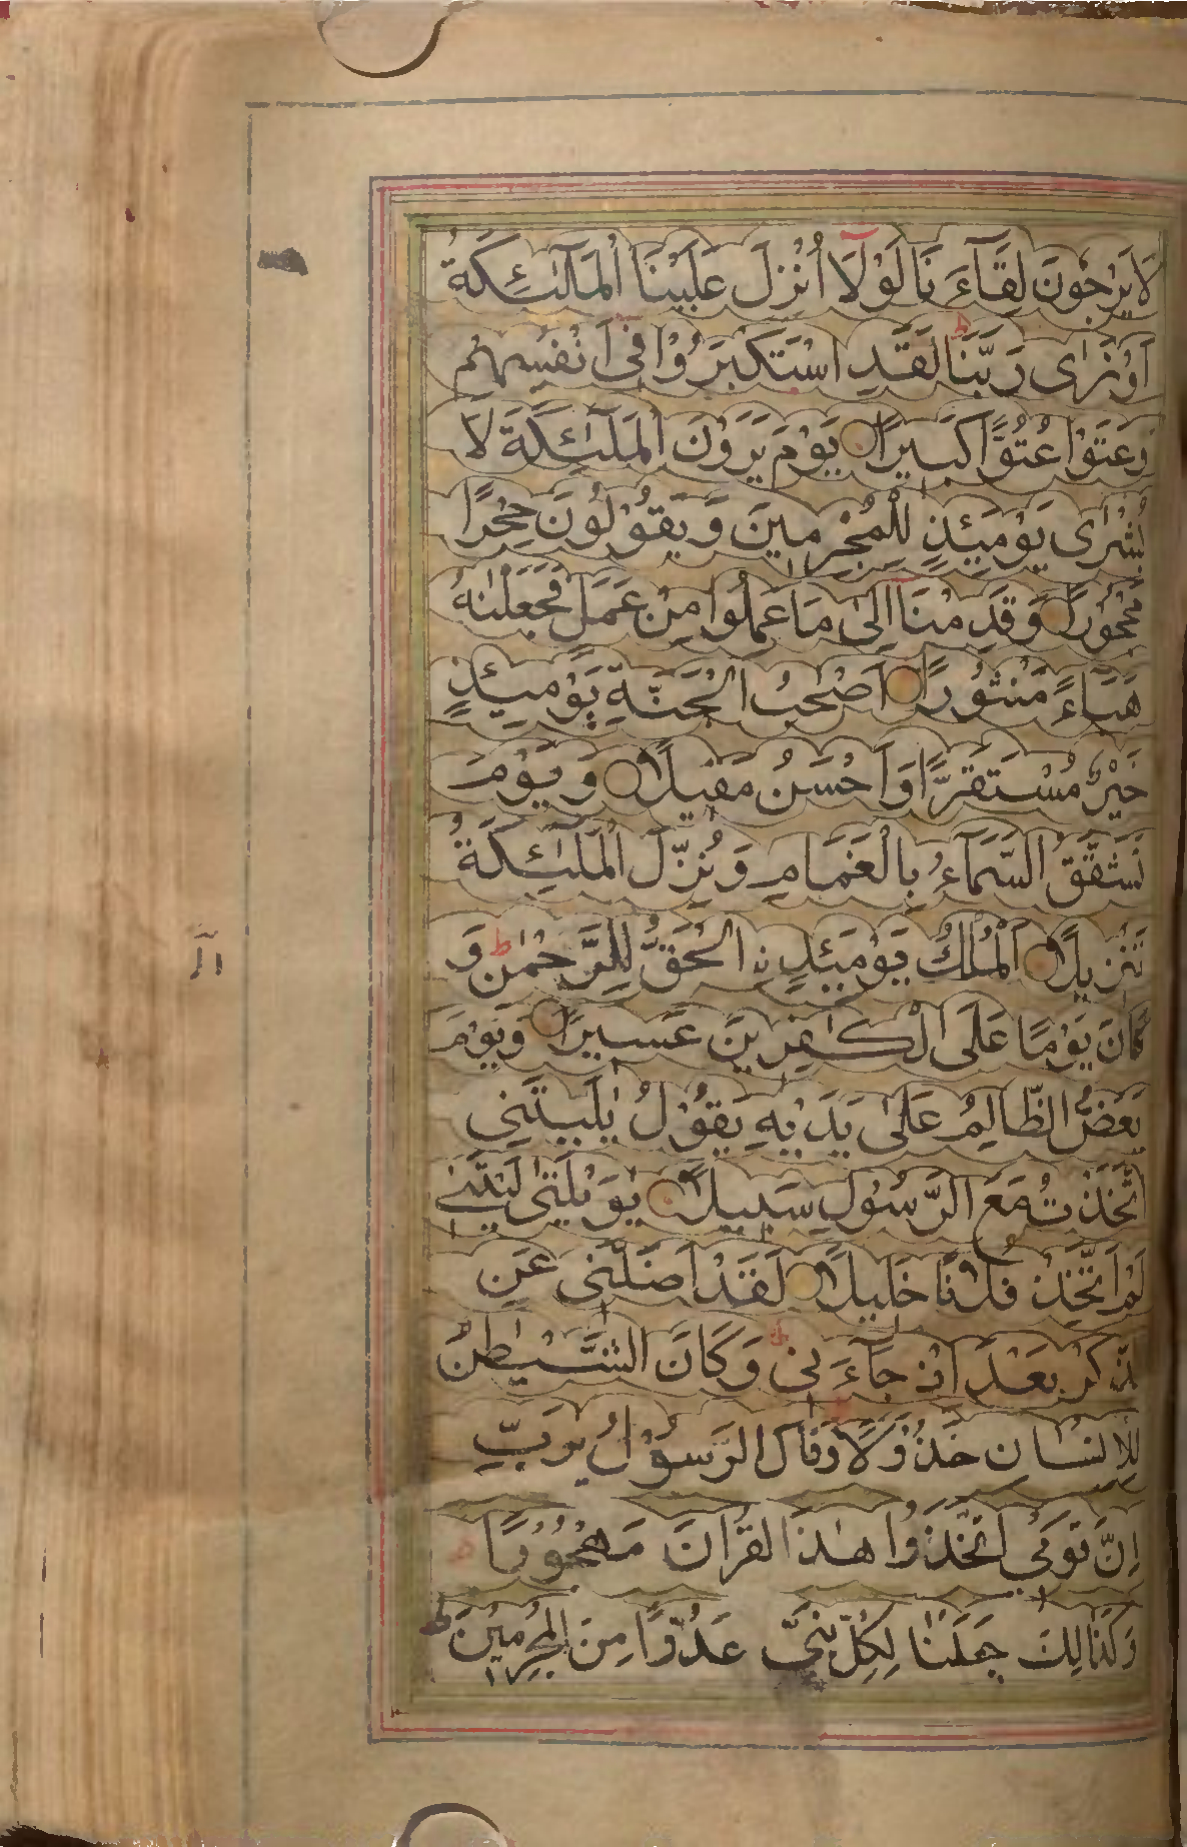 لَا يَرْجُونَ لِقَآءَ نَا لَوْلَآ اُنْزِلَ عَلَيْنَا الْمَلٰٓئِكَةُ
اَوْ نَرٰى رَبَّنَا ط لَقَدِ اسْتَكْبَرُوْا فِىٓ اَنْفُسِهِمْ
وَعَتَوْا عُتُوًّا كَبِيرًا يَوْمَ يَرَوْنَ الْمَلٰٓئِكَةَ لَا
بُشْرٰى يَوْمَئِذٍ لِلْمُجْرِمِينَ وَيَقُوْلُوْنَ حِجْرًا
مَحْجُوْرًا وَقَدِمْنَآ اِلٰى مَا عَمِلُوا مِنْ عَمَلٍ فَجَعَلْنٰهُ
هَبَاءً مَنْثُوْرًا اَصْحٰبُ الْجَنَّةِ يَوْمَئِذٍ
خَيْرٌ مُسْتَقَرًّا وَاَحْسَنُ مَقِيلًا وَيَوْمَ
تَشَقَّقُ السَّمَآءُ بِالْغَمَامِ وَنُزِّلَ الْمَلٰٓئِكَةُ
تَنْزِيلًا اَلْمُلْكُ يَوْمَئِذِ نِ الْحَقُّ لِلرَّحْمٰنِ ط وَ
كَانَ يَوْمًا عَلَى الْكٰفِرِينَ عَسِيرًا وَيَوْمَ
يَعَضُّ الظَّالِمُ عَلٰى يَدَيْهِ يَقُوْلُ يٰلَيْتَنِى
اتَّخَذْتُ مَعَ الرَّسُوْلِ سَبِيلًا يٰوَيْلَتٰى لَيْتَنِى
لَمْ اَتَّخِذْ فُلَانًا خَلِيلًا لَقَدْ اَضَلَّنِى عَنِ
الذِّكْرِ بَعْدَ اِذْ جَآءَ نِى ط وَكَانَ الشَّيْطٰنُ
لِلْاِنْسَانِ خَذُوْلًا وَقَالَ الرَّسُوْلُ يٰرَبِّ
اِنَّ قَوْمِى اتَّخَذُوْا هٰذَا الْقُرْاٰنَ مَهْجُوْرًا
وَكَذَالِكَ جَعَلْنَا لِكُلِّ نَبِىٍّ عَدُوًّا مِنَ الْمُجْرِمِيْنَ ط